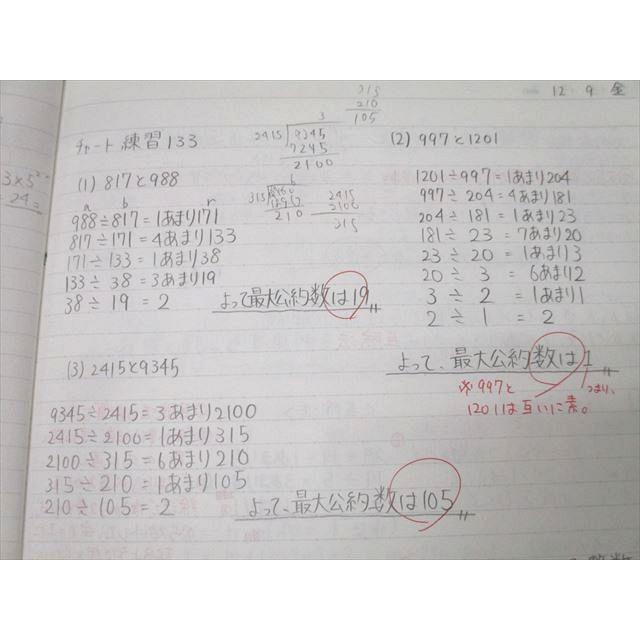 12 9 金
315
210
105
チャート 練習133
3
2415 9345
7245
2100
(1) 817と988
a b r
988÷817=1あまり171
817÷171=4あまり133
171÷133=1あまり38
133÷38=3あまり19
38÷19=2
よって最大公約数は19
6
315
210
2415
2100
315
(2) 997と1201
1201÷997=1あまり204
997÷204=4あまり181
204÷181=1あまり23
181÷23=7あまり20
23÷20=1あまり3
20÷3=6あまり2
3÷2=1あまり1
2÷1=2
よって、最大公約数は1
つまり、
※997と
1201は互いに素。
(3) 2415と9345
9345÷2415=3あまり2100
2415÷2100=1あまり315
2100÷315=6あまり210
315÷210=1あまり105
210÷105=2
よって、最大公約数は105
3×5
=24=